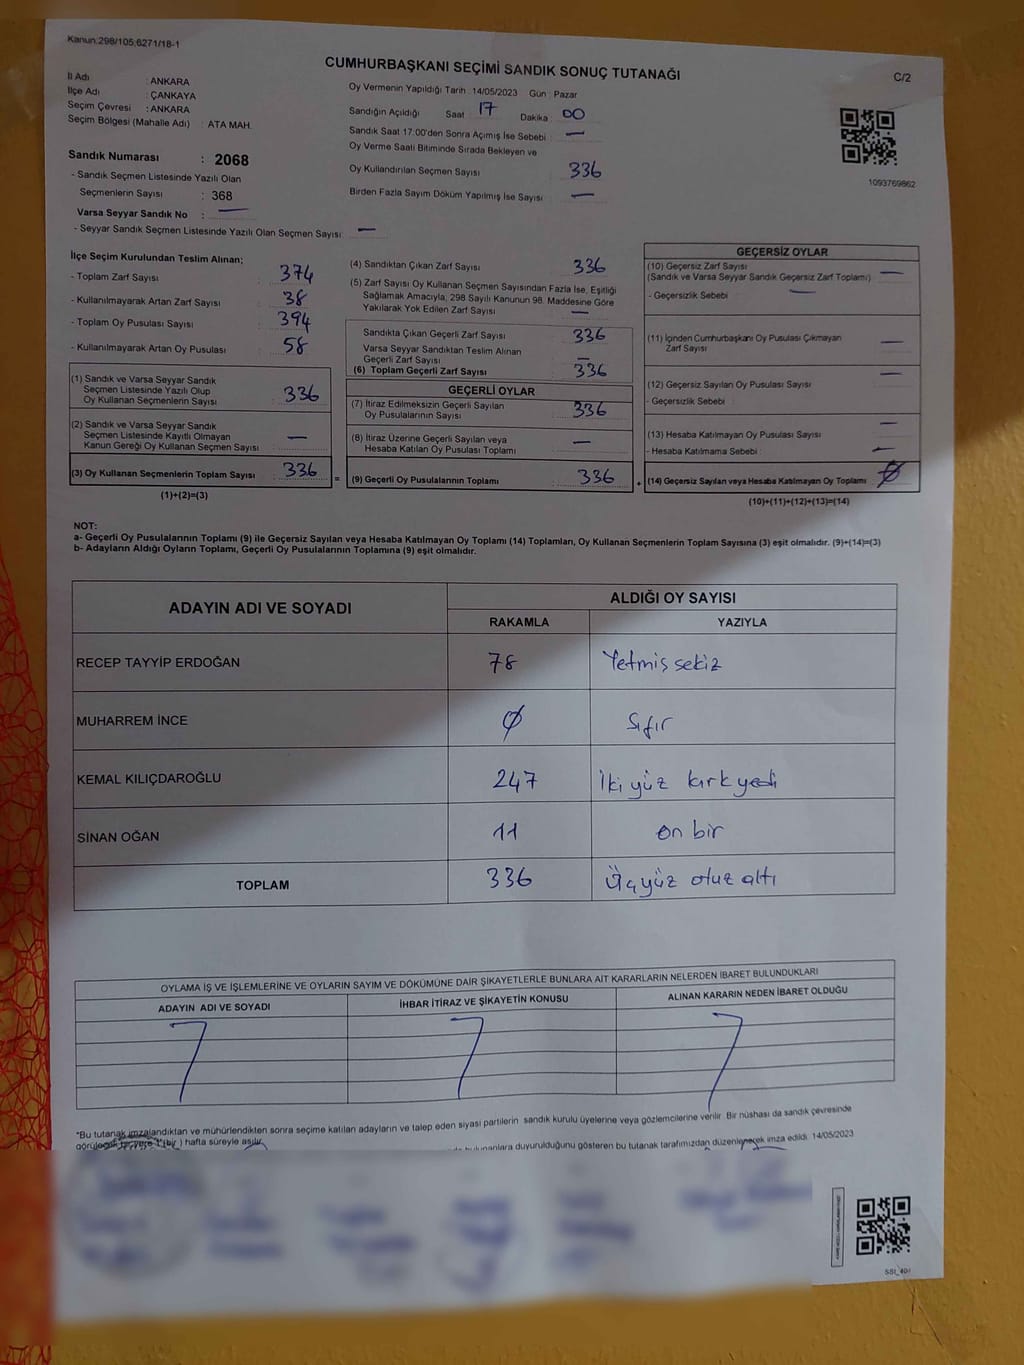 Kanun:298/105;6271/18-1
CUMHURBAŞKANI SEÇİMİ SANDIK SONUÇ TUTANAĞI
C/2
İl Adı : ANKARA
İlçe Adı : ÇANKAYA
Seçim Çevresi : ANKARA
Seçim Bölgesi (Mahalle Adı) : ATA MAH.
Sandık Numarası : 2068
- Sandık Seçmen Listesinde Yazılı Olan
Seçmenlerin Sayısı : 368
Varsa Seyyar Sandık No : —
- Seyyar Sandık Seçmen Listesinde Yazılı Olan Seçmen Sayısı: —
Oy Vermenin Yapıldığı Tarih : 14/05/2023 Gün : Pazar
Sandığın Açıldığı Saat 17 Dakika 00
Sandık Saat 17.00'den Sonra Açımış İse Sebebi : —
Oy Verme Saati Bitiminde Sırada Bekleyen ve
Oy Kullandırılan Seçmen Sayısı : 336
Birden Fazla Sayım Döküm Yapılmış İse Sayısı : —
1093769862
İlçe Seçim Kurulundan Teslim Alınan;
- Toplam Zarf Sayısı : 374
- Kullanılmayarak Artan Zarf Sayısı : 38
- Toplam Oy Pusulası Sayısı : 394
- Kullanılmayarak Artan Oy Pusulası : 58
(1) Sandık ve Varsa Seyyar Sandık
Seçmen Listesinde Yazılı Olup
Oy Kullanan Seçmenlerin Sayısı : 336
(2) Sandık ve Varsa Seyyar Sandık
Seçmen Listesinde Kayıtlı Olmayan
Kanun Gereği Oy Kullanan Seçmen Sayısı : —
(3) Oy Kullanan Seçmenlerin Toplam Sayısı : 336
(1)+(2)=(3)
(4) Sandıktan Çıkan Zarf Sayısı : 336
(5) Zarf Sayısı Oy Kullanan Seçmen Sayısından Fazla İse, Eşitliği
Sağlamak Amacıyla, 298 Sayılı Kanunun 98. Maddesine Göre
Yakılarak Yok Edilen Zarf Sayısı : —
Sandıkta Çıkan Geçerli Zarf Sayısı : 336
Varsa Seyyar Sandıktan Teslim Alınan
Geçerli Zarf Sayısı : —
(6) Toplam Geçerli Zarf Sayısı : 336
GEÇERLİ OYLAR
(7) İtiraz Edilmeksizin Geçerli Sayılan
Oy Pusulalarının Sayısı : 336
(8) İtiraz Üzerine Geçerli Sayılan veya
Hesaba Katılan Oy Pusulası Toplamı : —
= (9) Geçerli Oy Pusulalarının Toplamı : 336 +
GEÇERSİZ OYLAR
(10) Geçersiz Zarf Sayısı
(Sandık ve Varsa Seyyar Sandık Geçersiz Zarf Toplamı) : —
- Geçersizlik Sebebi : —
(11) İçinden Cumhurbaşkanı Oy Pusulası Çıkmayan
Zarf Sayısı : —
(12) Geçersiz Sayılan Oy Pusulası Sayısı : —
- Geçersizlik Sebebi :
(13) Hesaba Katılmayan Oy Pusulası Sayısı : —
- Hesaba Katılmama Sebebi : —
(14) Geçersiz Sayılan veya Hesaba Katılmayan Oy Toplamı : Ø
(10)+(11)+(12)+(13)=(14)
NOT:
a- Geçerli Oy Pusulalarının Toplamı (9) ile Geçersiz Sayılan veya Hesaba Katılmayan Oy Toplamı (14) Toplamları, Oy Kullanan Seçmenlerin Toplam Sayısına (3) eşit olmalıdır. (9)+(14)=(3)
b- Adayların Aldığı Oyların Toplamı, Geçerli Oy Pusulalarının Toplamına (9) eşit olmalıdır.
ADAYIN ADI VE SOYADI ALDIĞI OY SAYISI
RAKAMLA YAZIYLA
RECEP TAYYİP ERDOĞAN 78 Yetmiş sekiz
MUHARREM İNCE Ø Sıfır
KEMAL KILIÇDAROĞLU 247 İki yüz kırk yedi
SİNAN OĞAN 11 on bir
TOPLAM 336 Üç yüz otuz altı
OYLAMA İŞ VE İŞLEMLERİNE VE OYLARIN SAYIM VE DÖKÜMÜNE DAİR ŞİKAYETLERLE BUNLARA AİT KARARLARIN NELERDEN İBARET BULUNDUKLARI
ADAYIN ADI VE SOYADI İHBAR İTİRAZ VE ŞİKAYETİN KONUSU ALINAN KARARIN NEDEN İBARET OLDUĞU
*Bu tutanak imzalandıktan ve mühürlendikten sonra seçime katılan adayların ve talep eden siyasi partilerin sandık kurulu üyelerine veya gözlemcilerine verilir. Bir nüshası da sandık çevresinde
görülecek bir yere 1 (bir ) hafta süreyle asılır.
bulunanlara duyurulduğunu gösteren bu tutanak tarafımızdan düzenlenerek imza edildi. 14/05/2023